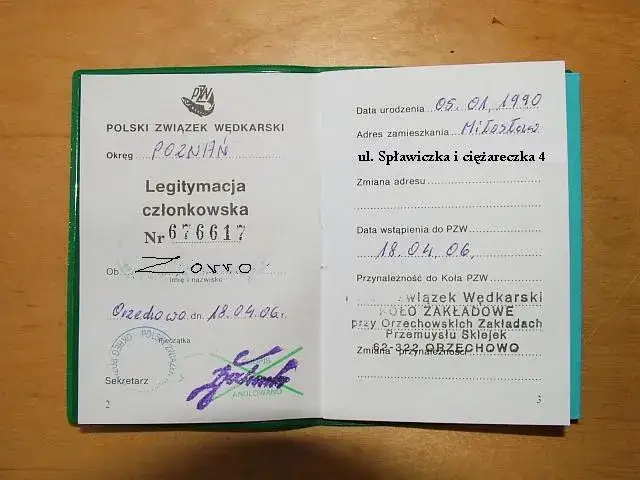 PZW
POLSKI ZWIĄZEK WĘDKARSKI
Okręg POZNAŃ
Legitymacja
członkowska
Nr 676617
Ob. Zorro
Imię i nazwisko
Orzechowo dn. 18.04.06 r.
Pieczątka
Sekretarz
ANULOWANO
2
Data urodzenia 05.01.1990
Adres zamieszkania Miłosław
ul. Spławiczka i ciężareczka 4
Zmiana adresu
Data wstąpienia do PZW
18.04.06.
Przynależność do Koła PZW
Związek Wędkarski
KOŁO ZAKŁADOWE
przy Orzechowskich Zakładach
Przemysłu Sklejek
62-322 ORZECHOWO
Zmiana przynależności
3